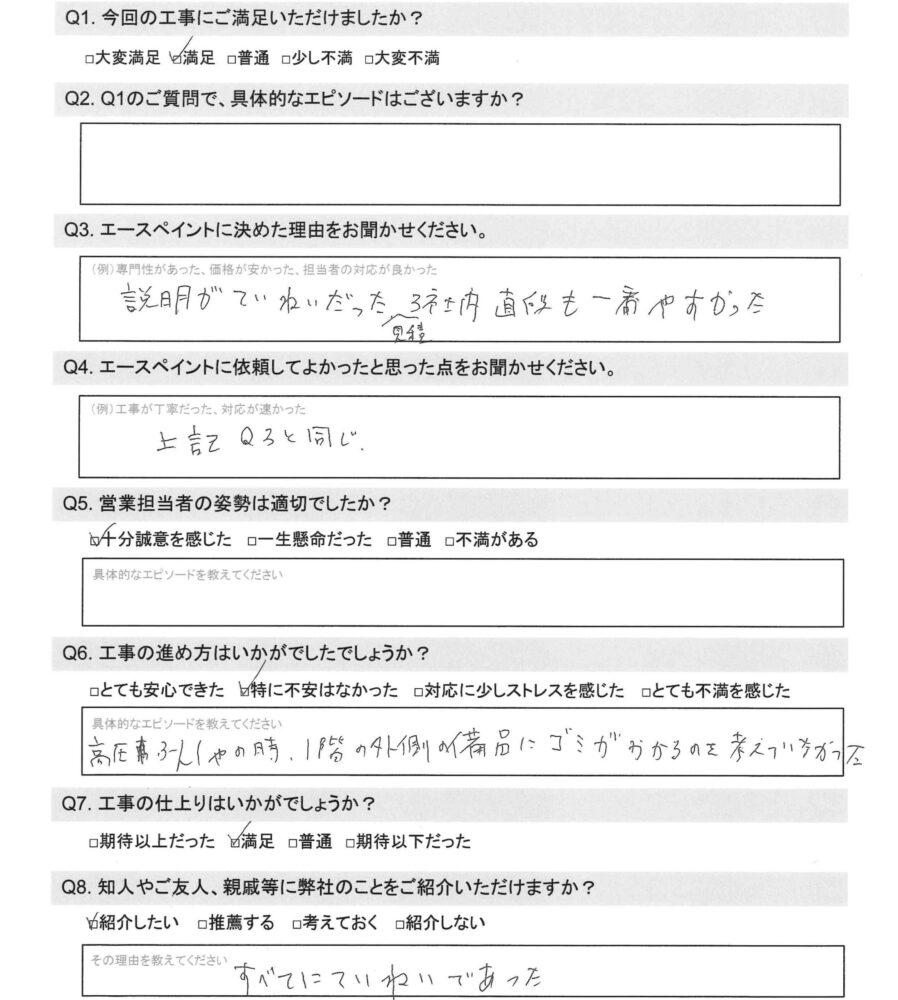 Q1. 今回の工事にご満足いただけましたか？
□大変満足 ☑満足 □普通 □少し不満 □大変不満
Q2. Q1のご質問で、具体的なエピソードはございますか？
Q3. エースペイントに決めた理由をお聞かせください。
（例）専門性があった、価格が安かった、担当者の対応が良かった
説明がていねいだった 3社内 直段も一番やすかった
見積
Q4. エースペイントに依頼してよかったと思った点をお聞かせください。
（例）工事が丁寧だった、対応が速かった
上記 Q3と同じ.
Q5. 営業担当者の姿勢は適切でしたか？
☑十分誠意を感じた □一生懸命だった □普通 □不満がある
具体的なエピソードを教えてください
Q6. 工事の進め方はいかがでしたでしょうか？
□とても安心できた ☑特に不安はなかった □対応に少しストレスを感じた □とても不満を感じた
具体的なエピソードを教えてください
高圧の時、1階の外側の備品にゴミがかかるのを考えていなかった
Q7. 工事の仕上りはいかがでしょうか？
□期待以上だった ☑満足 □普通 □期待以下だった
Q8. 知人やご友人、親戚等に弊社のことをご紹介いただけますか？
☑紹介したい □推薦する □考えておく □紹介しない
その理由を教えてください
すべてにていねいであった